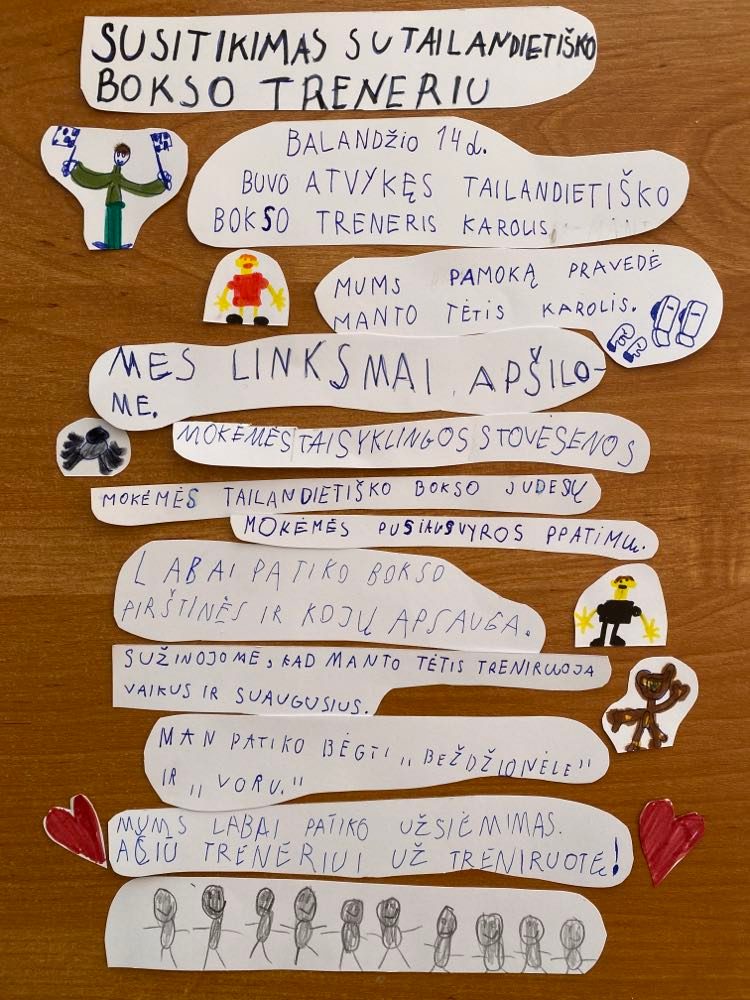 SUSITIKIMAS SU TAILANDIETIŠKO
BOKSO TRENERIU
BALANDŽIO 14 d.
BUVO ATVYKĘS TAILANDIETIŠKO
BOKSO TRENERIS KAROLIS.
MUMS PAMOKĄ PRAVEDĖ
MANTO TĖTIS KAROLIS.
MES LINKSMAI APŠILO-
ME.
MOKĖMĖS TAISYKLINGOS STOVĖSENOS
MOKĖMĖS TAILANDIETIŠKO BOKSO JUDESŲ
MOKĖMĖS PUSIAUSVYROS PPATIMŲ.
LABAI PATIKO BOKSO
PIRŠTINĖS IR KOJŲ APSAUGA.
SUŽINOJOMĖ, KAD MANTO TĖTIS TRENIRUOJA
VAIKUS IR SUAUGUSIUS.
MAN PATIKO BĖGTI „BEŽDŽIONĖLE"
IR „VORU."
MUMS LABAI PATIKO UŽSIĖMIMAS.
AČIŪ TRENERIUI UŽ TRENIRUOTĘ!